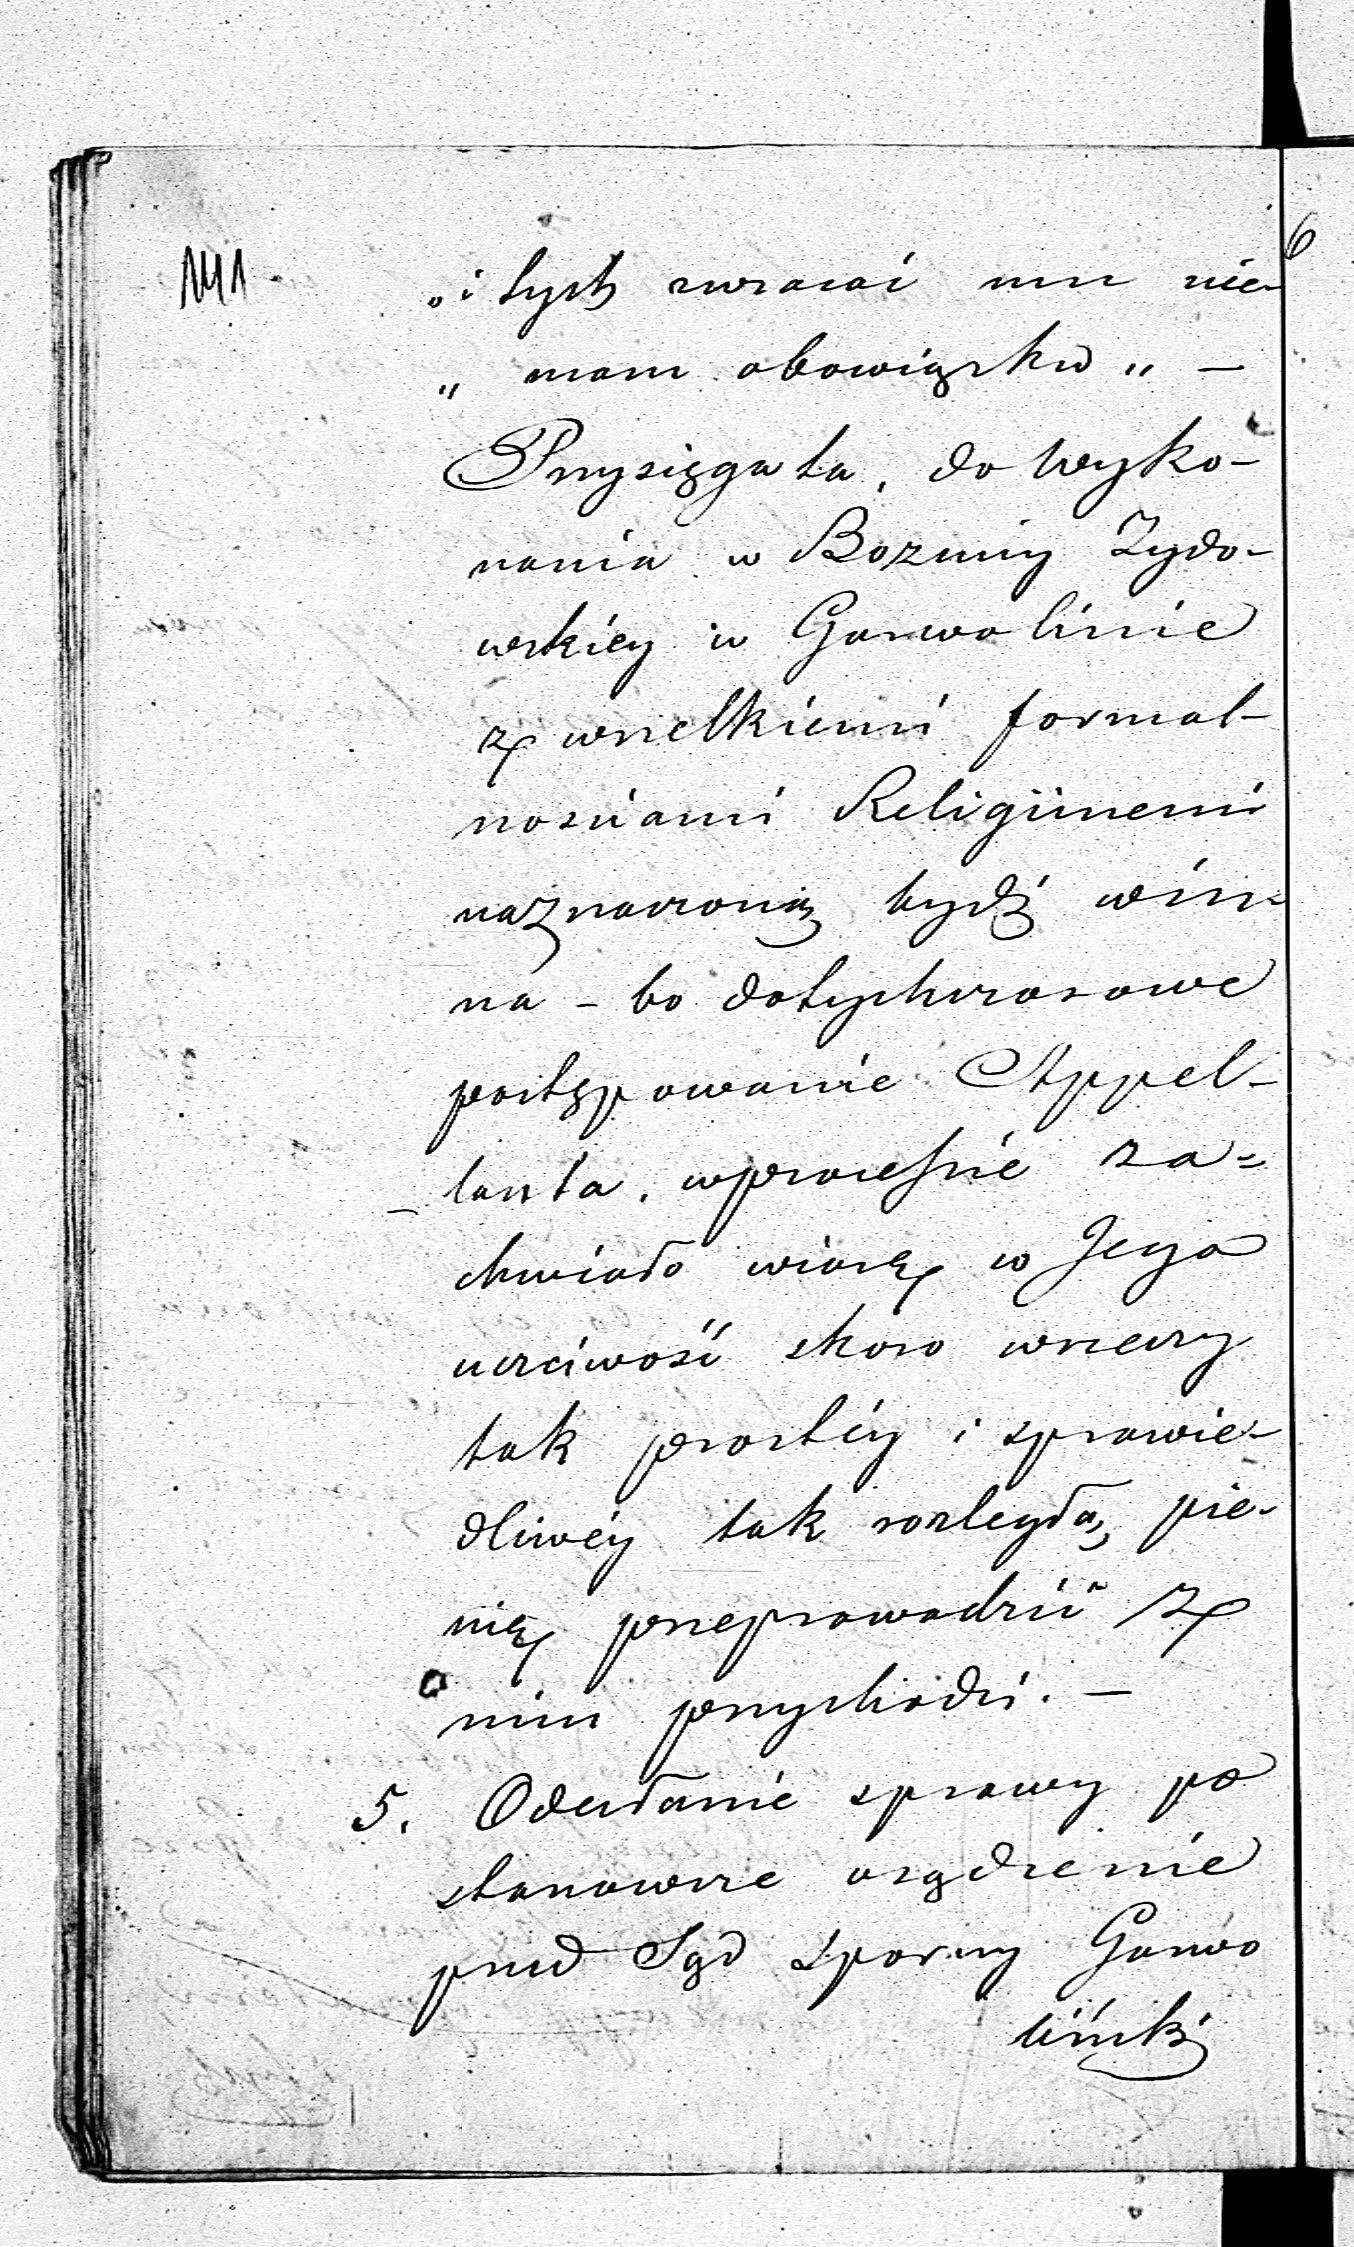 141
6
„i tych zwracać mu nie-
„ mam obowiązku „ —
Przysięga ta, do wyko-
nania w Boznicy Zydo-
wskiey w Garwolinie
z wszelkiemi formal-
nościami Religiinemi
naznaczoną bydź win-
na – bo dotychczasowe
postępowanie Appel-
lanta, w processie za-
chwiało wiarę w Jego
uczciwość skoro w rzeczy
tak prostéy i sprawie-
dliwéy tak rozległą pie-
nię przeprowadzić z
nim przychodzi. —
5. Odesłanie sprawy po
stanowcze osądzenie
przed Sąd sporny Garwo
liński